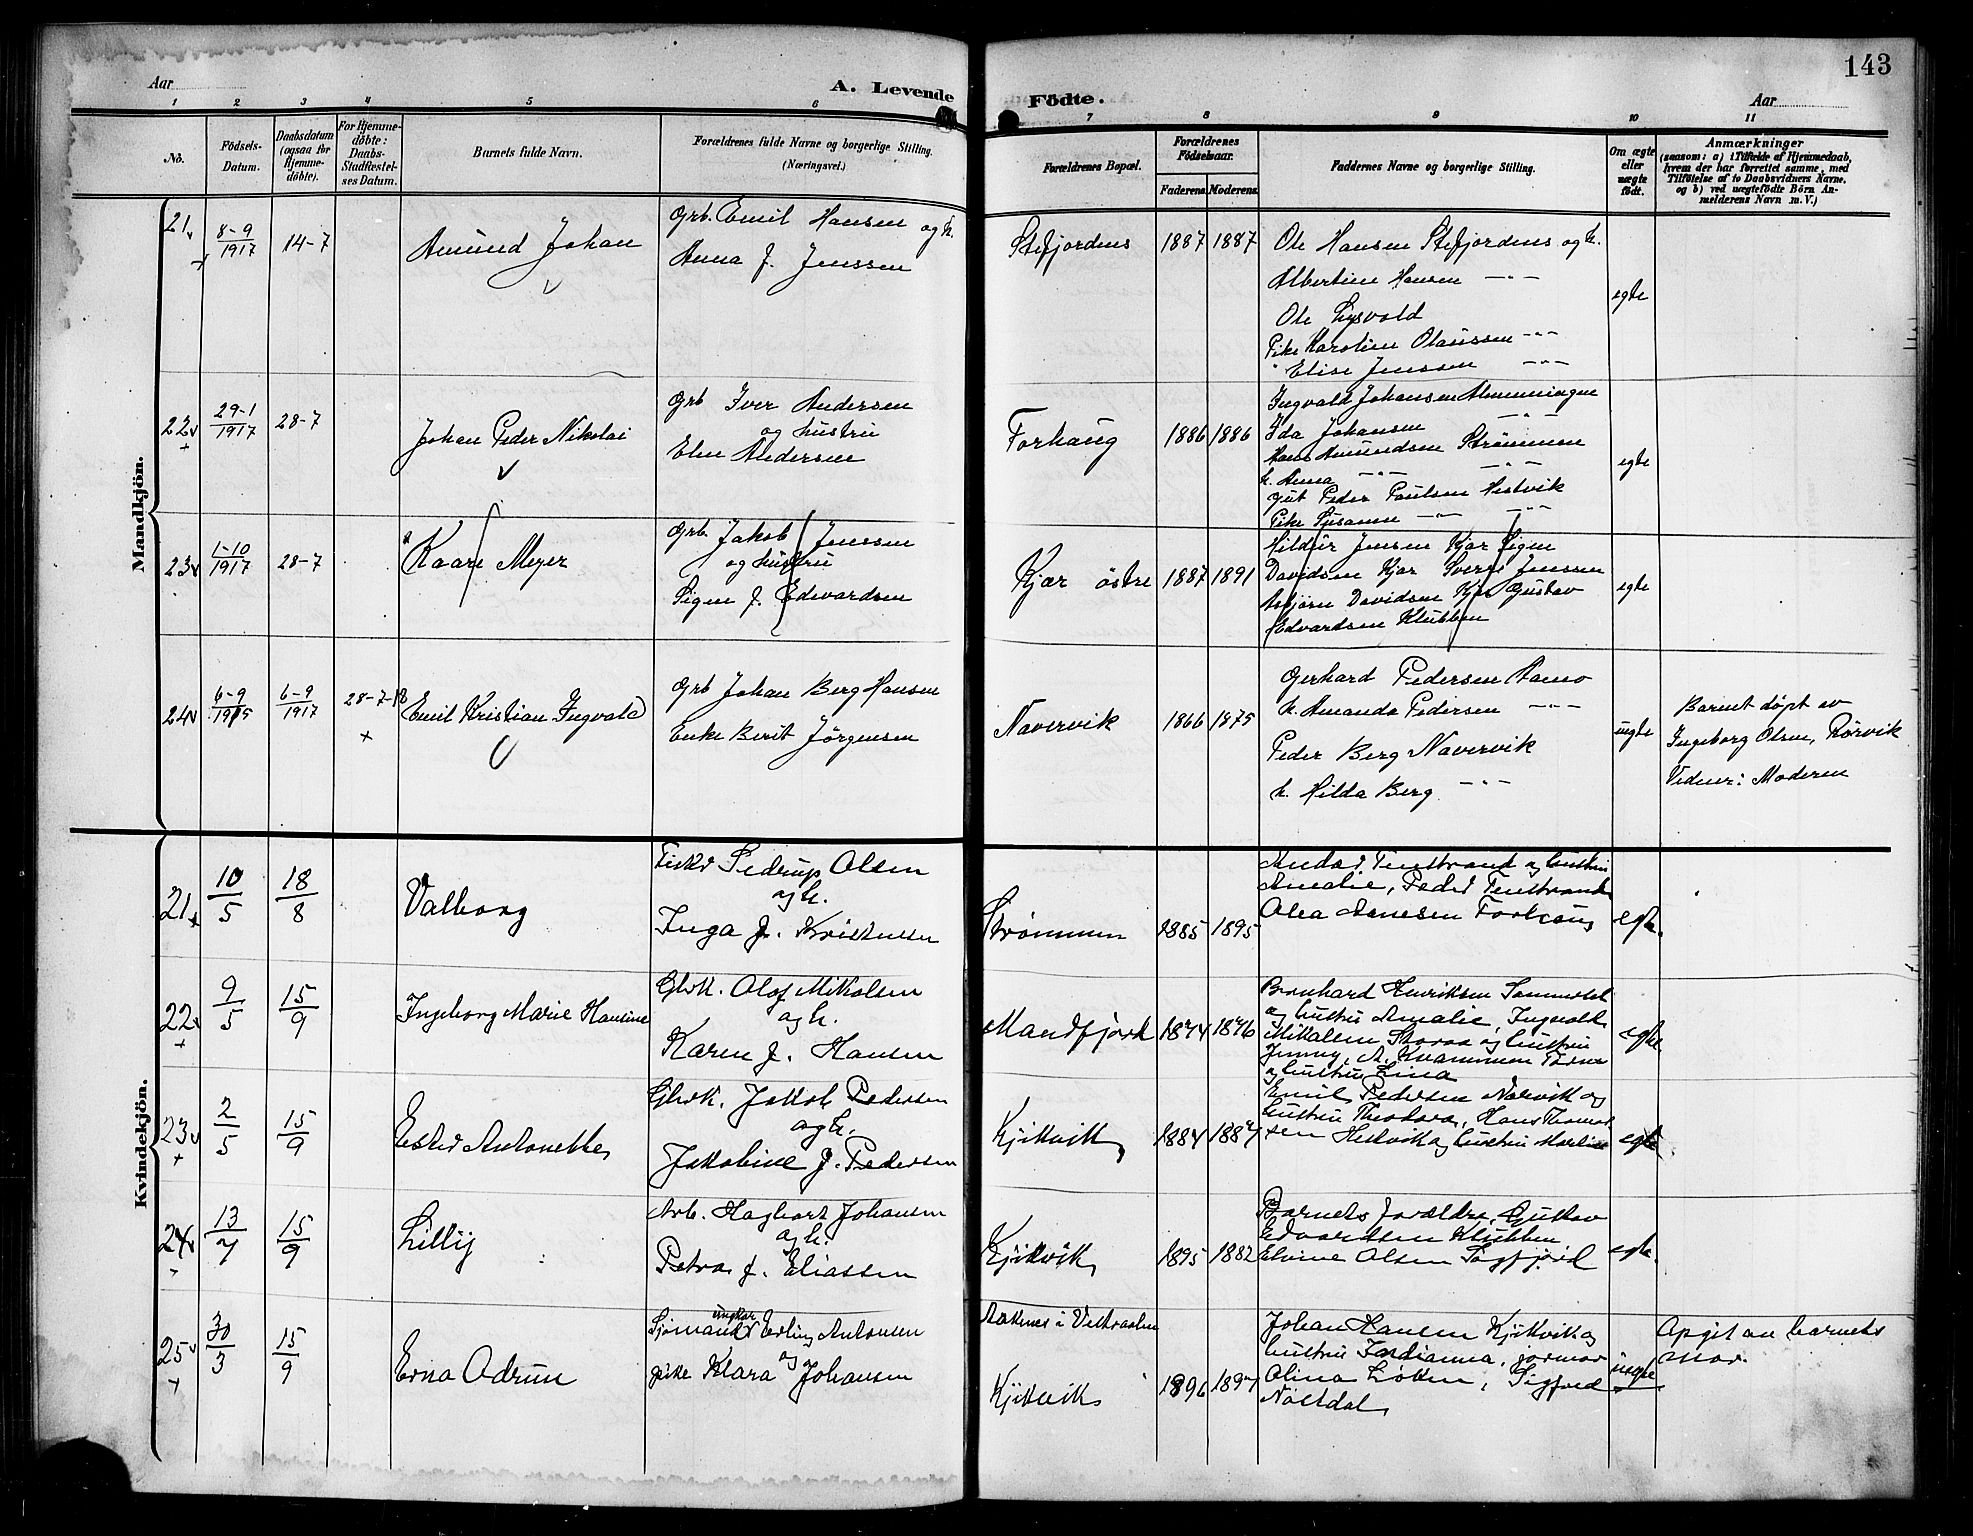 143
Aar
A. Levende
Födte.
Aar
1 2 3 4 5 6 7 8 9 10 11
No.
Födsels-
Datum.
Daabsdatum
(ogsaa for
Hjemme-
döbte).
For Hjemme-
döbte:
Daabs-
Stadfæstel-
ses Datum.
Barnets fulde Navn.
Forældrenes fulde Navne og borgerlige Stilling.
(Næringsvei.)
Forældrenes Bopæl.
Forældrenes
Födselsaar.
Faderens. Moderens.
Faddernes Navne og borgerlige Stilling.
Om ægte
eller
uægte
födt.
Anmærkninger
(saasom: a) i Tilfælde af Hjemmedaab,
hvem der har forrettet samme, med
Tilföielse af to Daabsvidners Navne,
og b) ved uægtefödte Börn An-
melderens Navn m. V.)
Mandkjön.
21
8-9
1917
14-7
Amund Johan
Grb. Emil Hansen og h.
Anna f. Jenssen
Stefjordens
1887 1887
Ole Hansen Stefjordens og h.
Albertine Hansen -"-
Ole Lysvold
Pike Karoline Olaussen -"-
" Elise Jenssen -"-
egte
22
29-1
1917
28-7
Johan Peder Nikolai
Grb Iver Andersen
og hustru
Elen Andersen
Forhaug
1886 1886
Ingvald Johansen
Ida Johansen -"-
Hans Amundsen Strömmen
h. Anna -"- -"-
gut Peder Paulsen Hestvik
Pike Susanne -"- -"-
egte
23
1-10
1917
28-7
Kaare Meyer
Grb. Jakob Jenssen
og hustru
Signe f. Edvardsen
Kjær östre
1887 1891
Hildur Jensen Kjær Signe
Davidsen Kjær Sverre Jenssen
Asbjörn Davidsen Kjær Gustav
Edvardsen Klubben
egte
24
6-9
1915
6-9
1917
28-7-18
Emil Kristian Ingvald
Grb Johan Berg Hansen
Enke Berit Jörgensen
Navervik
1866 1875
Gerhard Pedersen
h. Amanda Pedersen -"-
Peder Berg Navervik
h. Hilda Berg -"-
uegte
Barnet døpt av
Ingeborg Olsen, Rörvik
Vidner: Moderen
Kvindekjön.
21
10
5
18
8
Valborg
Fisker Sedrup Olsen
og h.
Inga f. Kristensen
Strömmen
1885 1895
Tenstrand og hustru
Amalie, Peder Tenstrand
Olea Arnesen Forhaug
egte.
22
9
5
15
9
Ingeborg Marie Hansine
Gbrk. Olaf Mikalsen
og h.
Karen f. Hansen
Mandfjord
1874 1876
Bernhard Henriksen
og hustru Amalie, Ingvald
Mikalsen Storaa og hustru
Jenny, A. Kvammen
og hustru Lina
egte
23
2
5
15
9
Ester Antonette
Gbrk. Jakob Pedersen
og h.
Jakobine f. Pedersen
Kjikvik
1884 1887
Emil Pedersen Nervik og
hustru Theodora, Hans Thomas-
sen Hestvik og hustru
egte
24
13
7
15
9
Lilly
Arb. Hagbart Johansen
og h.
Petra f. Eliassen
Kjikvik
1895 1882
Barnets forældre, Gustav
Edvardsen Klubben
Elvine Olsen Sagfjord
egte.
25
30
3
15
9
Erna Odrun
ungkar
Sjömand Erling Antonsen
og
pike Klara Johansen
i Vesteraalen
Kjikvik
1896 1897
Johan Hansen Kjikvik og
hustru Indianna, jormor
Olina Löken, Sigfred
Nöisdal
uegte
Opgit av barnets
mor.